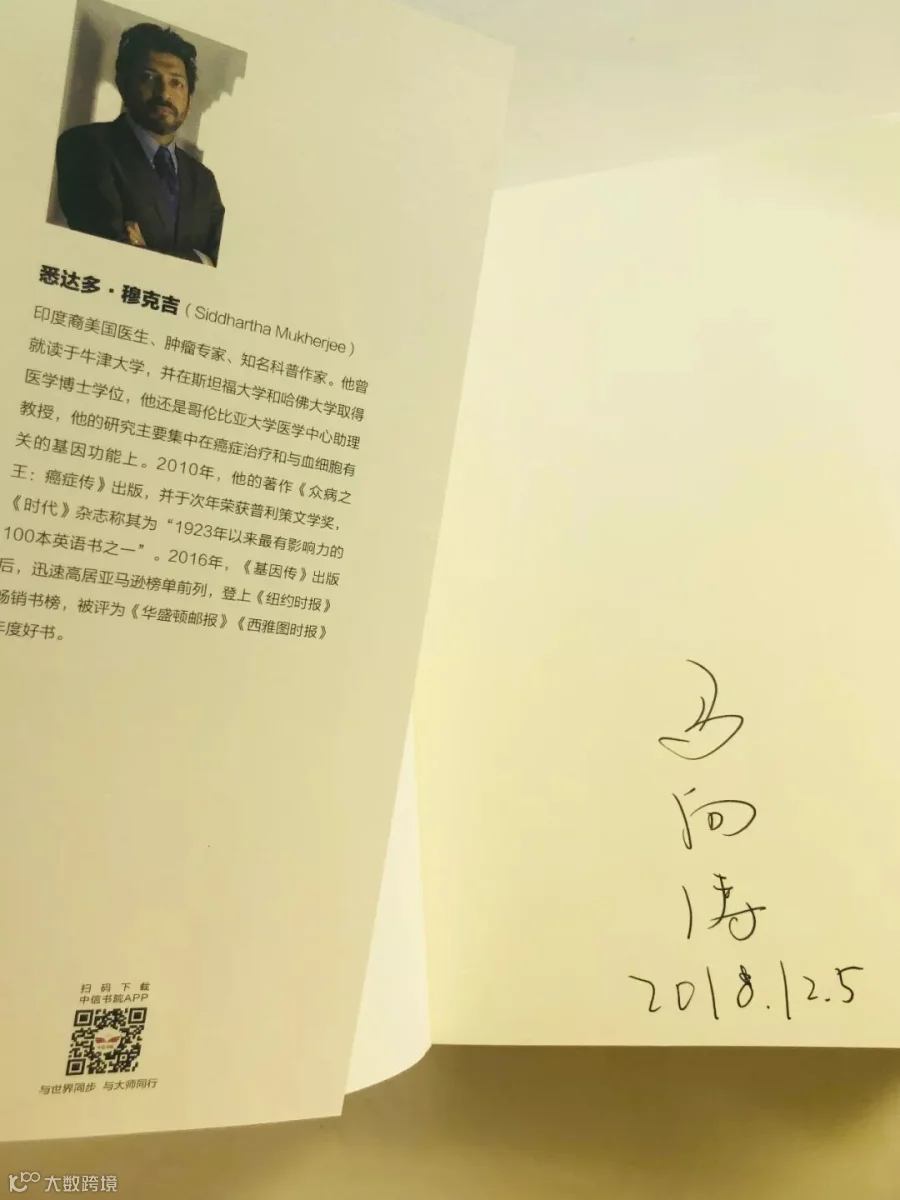 悉达多·穆克吉（Siddhartha Mukherjee）
印度裔美国医生、肿瘤专家、知名科普作家。他曾
就读于牛津大学，并在斯坦福大学和哈佛大学取得
医学博士学位，他还是哥伦比亚大学医学中心助理
教授，他的研究主要集中在癌症治疗和与血细胞有
关的基因功能上。2010年，他的著作《众病之
王：癌症传》出版，并于次年荣获普利策文学奖，
《时代》杂志称其为“1923年以来最有影响力的
100本英语书之一”。2016年，《基因传》出版
后，迅速高居亚马逊榜单前列，登上《纽约时报》
畅销书榜，被评为《华盛顿邮报》《西雅图时报》
年度好书。
扫码下载
中信书院APP
与世界同步 与大师同行
马
向
涛
2018.12.5
大数跨境